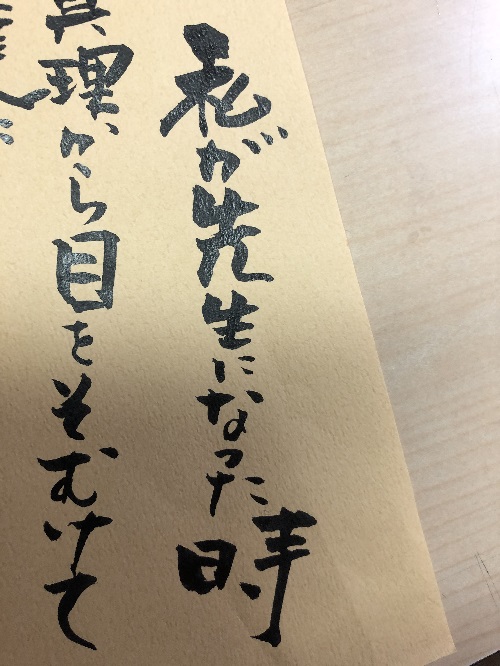 私が先生になった時
真理から目をそむけて